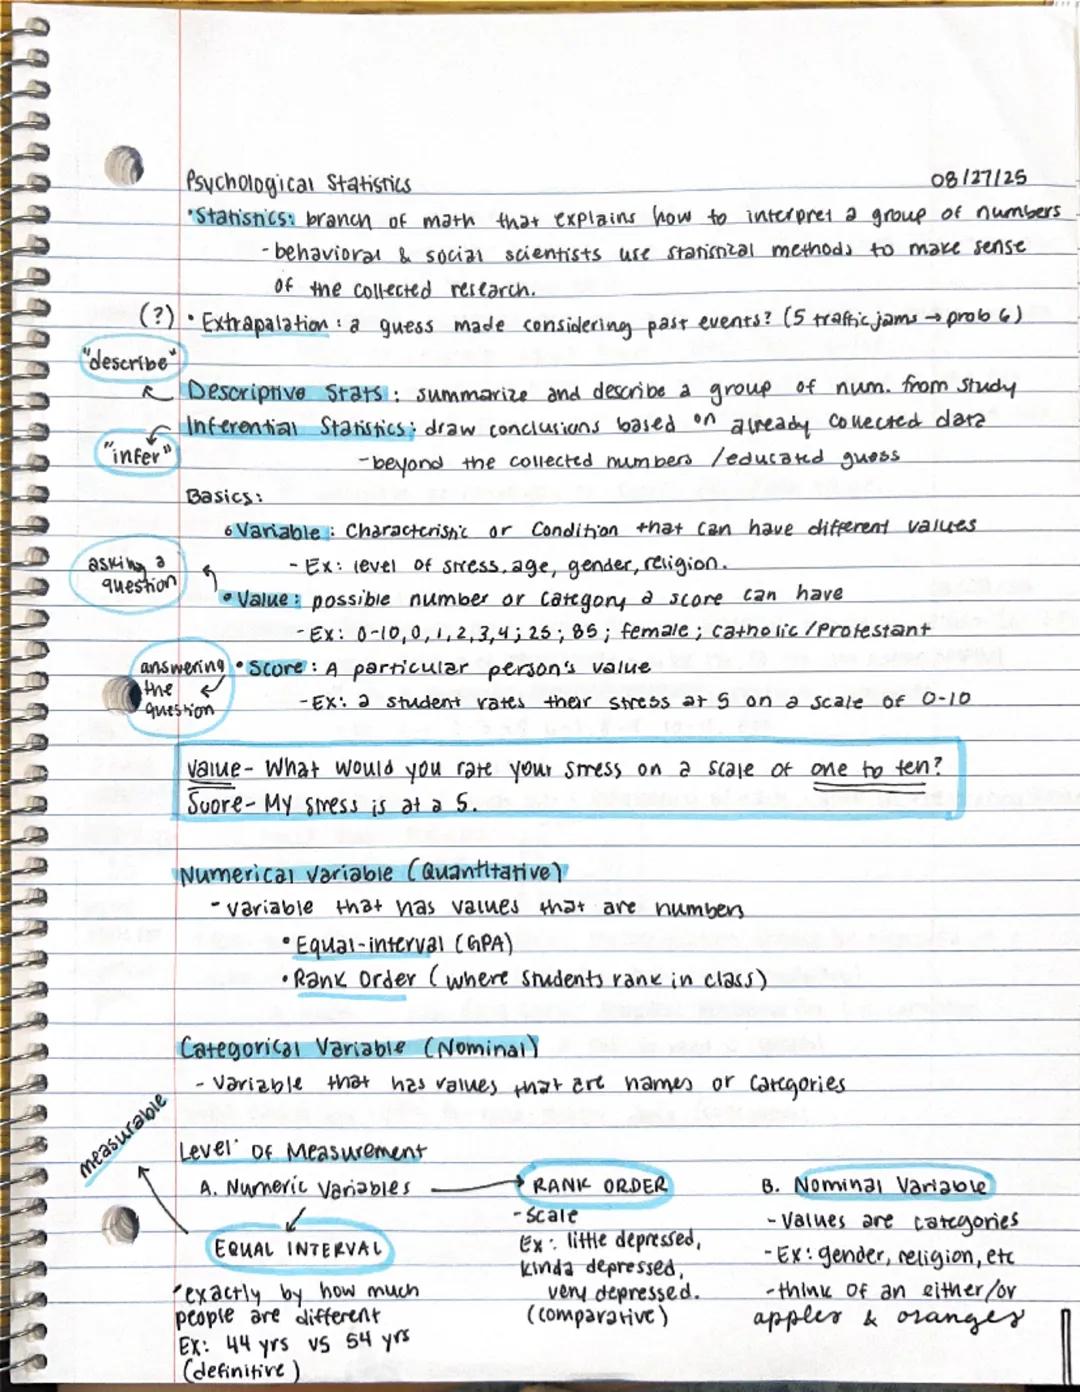 Psychological Statistics 08/27/25
•Statistics: branch of math that explains how to interpret a group of numbers
- behavioral & social scientists use statistical methods to make sense
of the collected research.
(?) • Extrapalation : a guess made considering past events? (5 traffic jams → prob 6)
"describe"
Descriptive Stats : summarize and describe a group of num. from study
Inferential Statistics : draw conclusions based on already collected data
"infer"
- beyond the collected numbers / educated guess
Basics:
• Variable : Characteristic or Condition that can have different values
- Ex: level of stress, age, gender, religion.
asking a
question
• Value : possible number or category a score can have
- Ex: 0-10, 0, 1, 2, 3, 4 ; 25 ; 85 ; female ; catholic / Protestant
answering
the
question
• Score : A particular person's value
- Ex: a student rates their stress at 5 on a scale of 0-10
Value - What would you rate your stress on a scale of one to ten?
Score - My stress is at a 5.
Numerical Variable (Quantitative)
- variable that has values that are numbers
• Equal-interval (GPA)
• Rank Order (where students rank in class)
Categorical Variable (Nominal)
- Variable that has values that are names or categories
measurable
Level of Measurement
A. Numeric Variables → RANK ORDER B. Nominal Variable
EQUAL INTERVAL
•exactly by how much
people are different
Ex: 44 yrs vs 54 yrs
(definitive)
- Scale
Ex: little depressed,
kinda depressed,
very depressed.
(comparative)
- Values are categories
- Ex: gender, religion, etc
- think of an either/or
apples & oranges